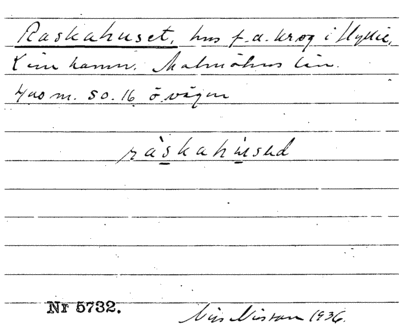 Raskahuset, hus f.d. krog i Hyllie,
Lim hamn. Malmöhus län.
400 m. SO. 16 ö. vägen
ràskahùsəd
Nr 5732.
Nils Nilsson 1936.